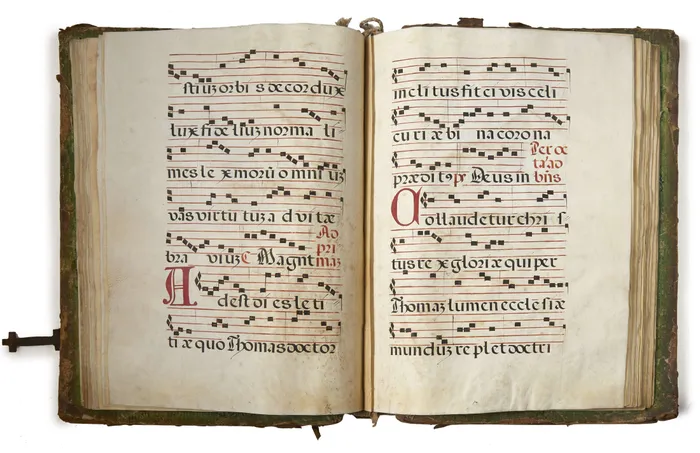 stiuz orbis decor dux
lux fideliuz norma li
mes lex morū omniuuz
vas virtutuz ad vitæ
bra viuz C Magnt Ad pri maz
Adest dies leti
tiæ quo Thomas doctor
inclitus fit civis celi
curiæ bina corona
prædit9 p̄r Deus in Per octa ad bn̄s
Collaudetur chris
tus rex gloriæ qui per
Thomaz lumen ecclesiæ
munduz replet doctri